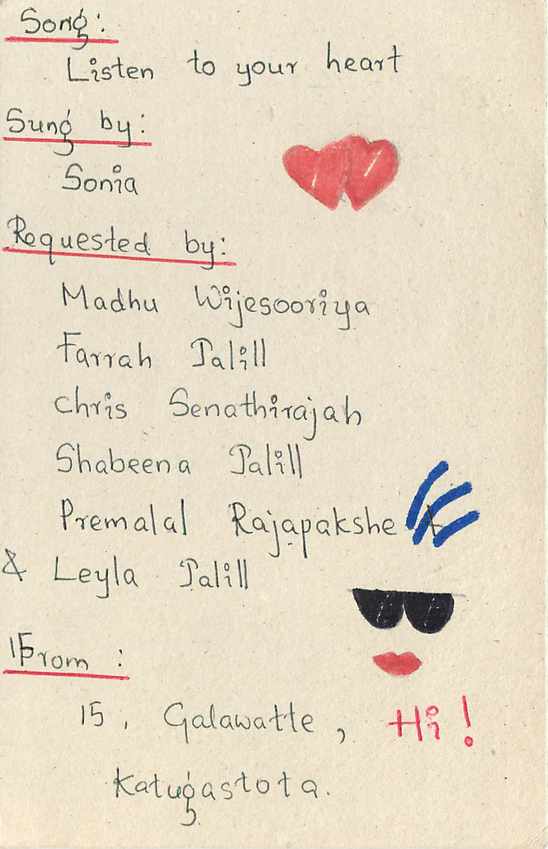 Song:
Listen to your heart
Sung by:
Sonia
Requested by:
Madhu Wijesooriya
Farrah Jalill
Chris Senathirajah
Shabeena Jalill
Premalal Rajapakshe &
& Leyla Jalill
From :
15, Galawatte, Hi!
Katugastota.